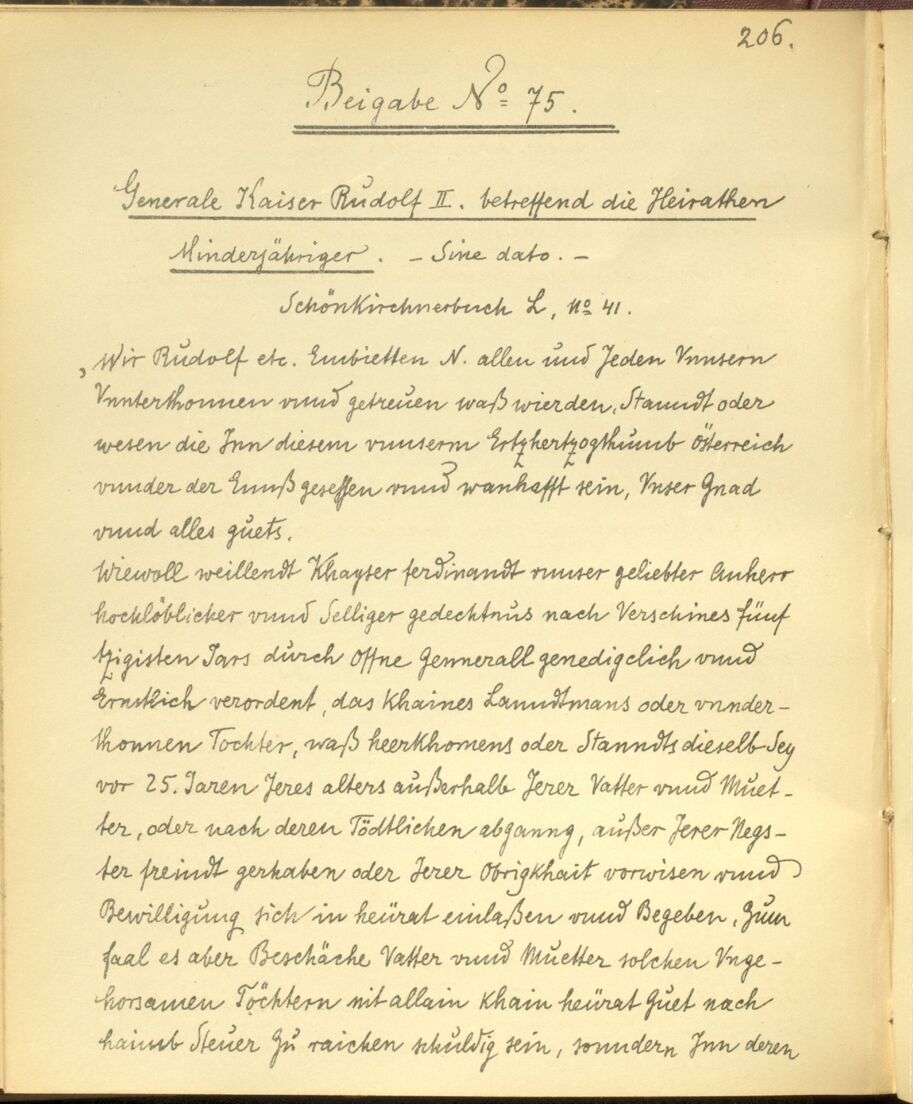 206.
Beigabe No 75.
Generale Kaiser Rudolf II. betreffend die Heirathen
Minderjähriger. - Sine dato. -
Schönkirchnerbuch L, No 41.
„Wir Rudolf etc. Embietten N. allen und Jeden Vnnsern
Vnnterthonnen vnnd getreuen waß wierden, Stanndt oder
wesen die Inn diesem vnnserm Ertzhertzogthumb Österreich
vnnder der Ennß gesessen vnnd wanhafft sein, Vnser Gnad
vnnd alles guets.
Wiewoll weillendt Khayser ferdinandt vnnser geliebter Anherr
hochlöblicher vnnd Selliger gedechtnus nach Verschines fünf
tzigisten Jars durch Offne Gennerall genedigclich vnnd
Ernstlich verordent, das Khaines Lanndtmans oder vnnder-
thonnen Tochter, waß heerkhomens oder Stanndts dieselb Sey
vor 25. Jaren Jeres alters außerhalb Jerer Vatter vnnd Muet-
ter, oder nach deren Tödtlichen abganng, außer Jerer Negs-
ter freindt gerhaben oder Jerer Obrigkhait vorwisen vnnd
Bewilligung sich in heürat einlaßen vnnd Begeben, Zum
faal es aber Beschäche Vatter vnnd Muetter solchen Vnge-
horsamen Töchtern nit allain khain heürat Guet nach
haimb Steuer Zu raichen schuldig sein, sonndern Inn deren